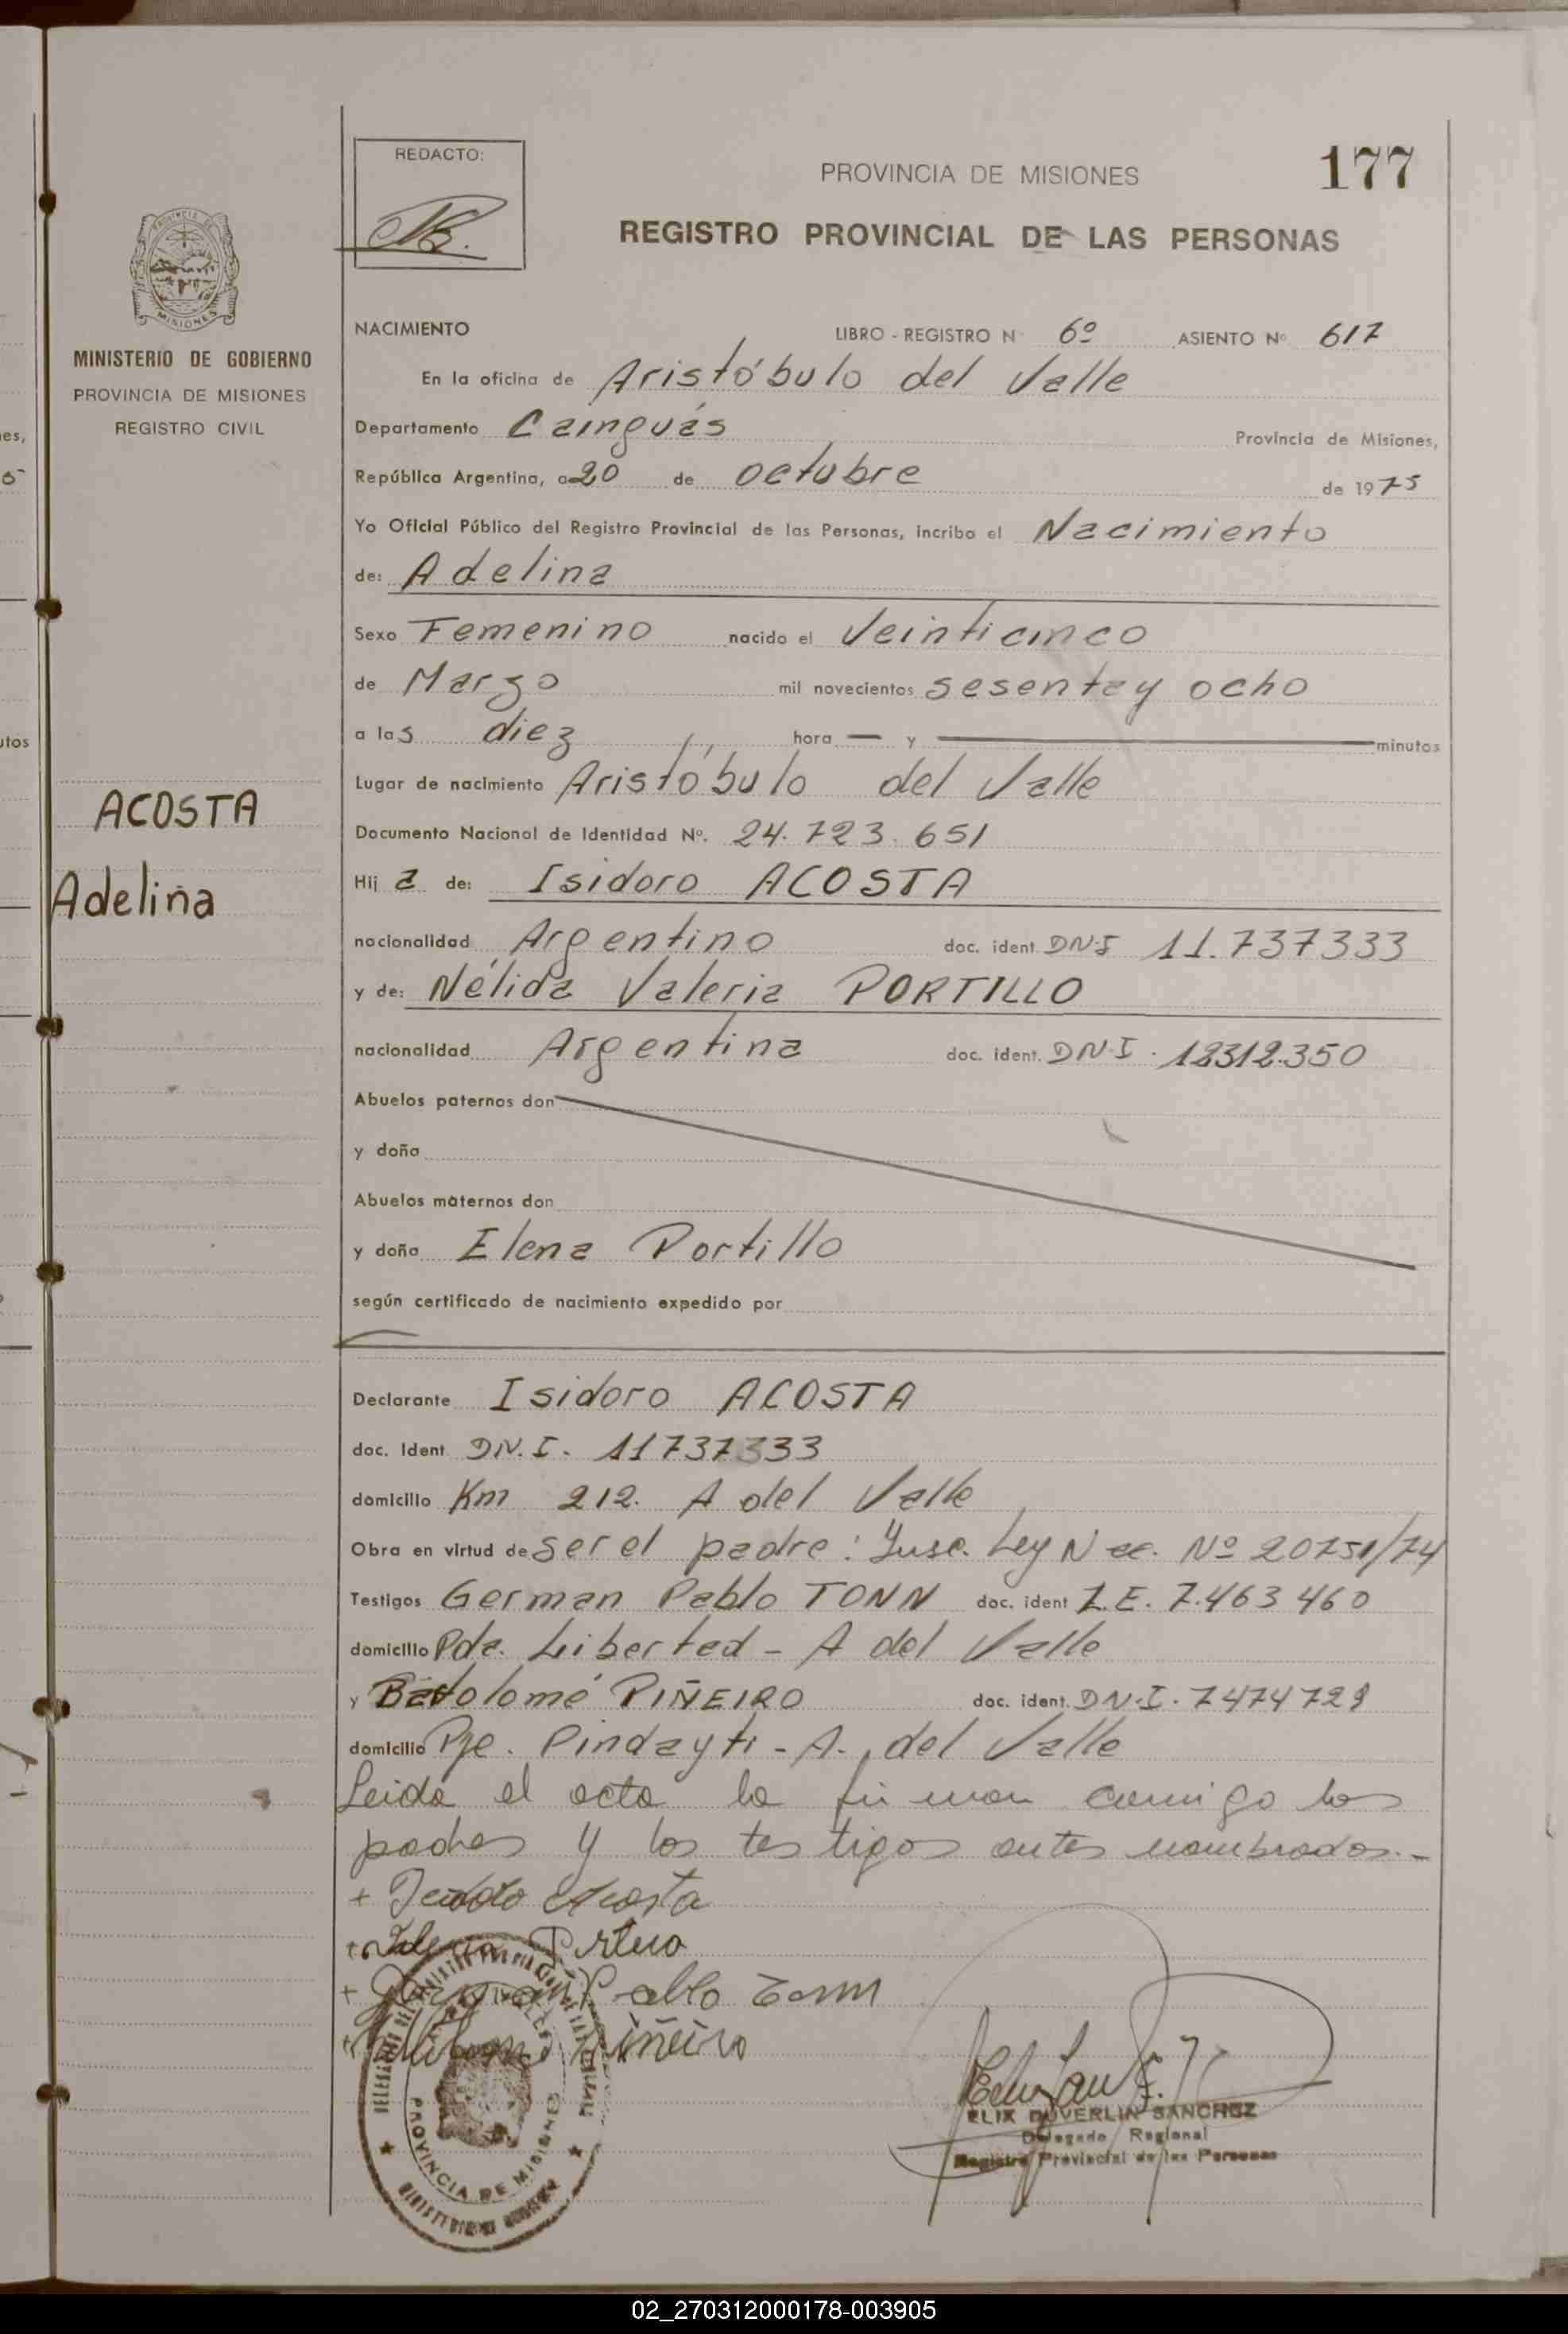 177
REDACTO:
PROVINCIA DE MISIONES
REGISTRO PROVINCIAL DE LAS PERSONAS
MISIONES
MINISTERIO DE GOBIERNO
PROVINCIA DE MISIONES
REGISTRO CIVIL
NACIMIENTO LIBRO - REGISTRO N 6º ASIENTO Nº 617
En la oficina de Aristóbulo del Valle
Departamento Cainguás Provincia de Misiones,
República Argentina, a 20 de octubre de 1975
Yo Oficial Público del Registro Provincial de las Personas, incribo el Nacimiento
de: Adelina
Sexo Femenino nacido el Veinticinco
de Marzo mil novecientos sesenta y ocho
a las diez hora — y — minutos
Lugar de nacimiento Aristóbulo del Valle
ACOSTA
Adelina
Documento Nacional de Identidad Nº. 24.723.651
Hij a de: Isidoro ACOSTA
nacionalidad Argentino doc. ident DNI 11.737333
y de: Nélida Valeria PORTILLO
nacionalidad Argentina doc. ident. DN.I. 12312.350
Abuelos paternos don
y doña
Abuelos maternos don
y doña Elena Portillo
según certificado de nacimiento expedido por
Declarante Isidoro ACOSTA
doc. Ident DN.I. 11737333
domicilio Km 212. A del Valle
Obra en virtud de ser el padre: Insc. Ley Nac. Nº 20751/74
Testigos German Pablo TONN doc. ident L.E. 7.463460
domicilio Pda. Libertad - A del Valle
y Bartolomé PIÑEIRO doc. ident. DN.I. 7474729
domicilio Pje. Pindayti - A. del Valle
Leida el acta la firman conmigo los
padres y los testigos antes nombrados.-
+ Acosta
+ Pablo Tonn
+ Piñeiro
PROVINCIA DE MISIONES
ELIX DUVERLIN SANCHEZ
Delegado Regional
Registro Provincial de las Personas
02_270312000178-003905